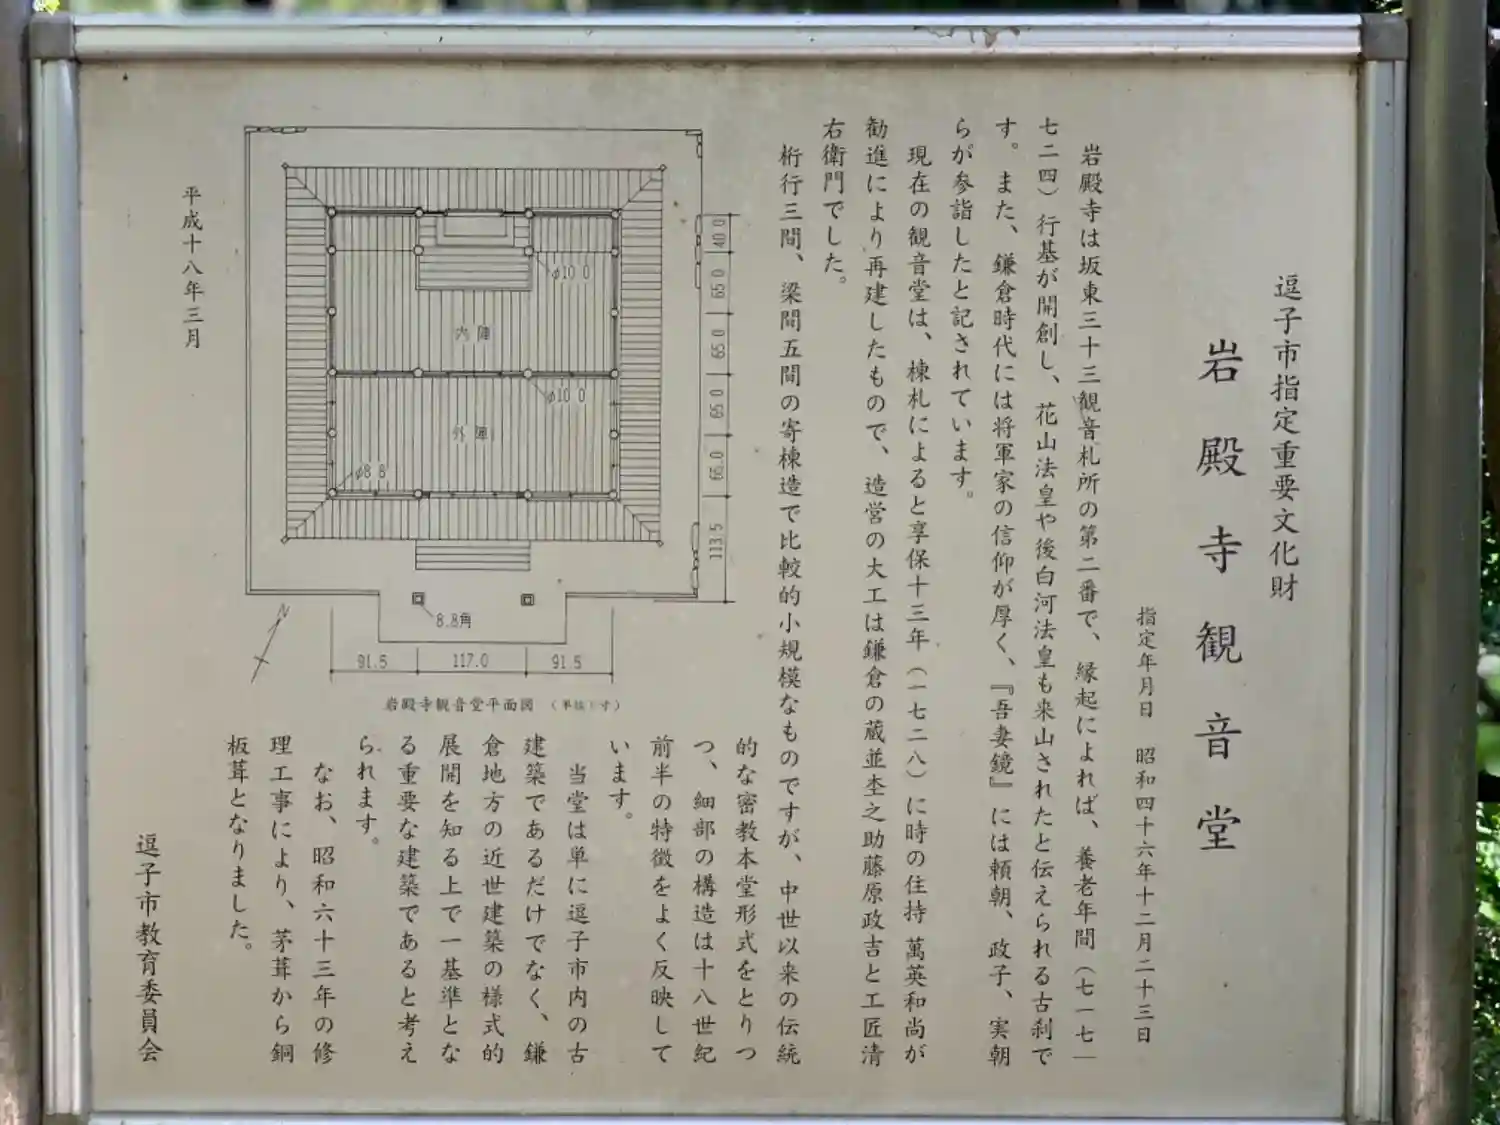 逗子市指定重要文化財
岩殿寺観音堂
指定年月日　昭和四十六年十二月二十三日
岩殿寺は坂東三十三観音札所の第二番で、縁起によれば、養老年間（七一七―
七二四）行基が開創し、花山法皇や後白河法皇も来山されたと伝えられる古刹で
す。また、鎌倉時代には将軍家の信仰が厚く、『吾妻鏡』には頼朝、政子、実朝
らが参詣したと記されています。
現在の観音堂は、棟札によると享保十三年（一七二八）に時の住持 萬英和尚が
勧進により再建したもので、造営の大工は鎌倉の蔵並杢之助藤原政吉と工匠清
右衛門でした。
桁行三間、梁間五間の寄棟造で比較的小規模なものですが、中世以来の伝統
的な密教本堂形式をとりつ
つ、細部の構造は十八世紀
前半の特徴をよく反映して
います。
当堂は単に逗子市内の古
建築であるだけでなく、鎌
倉地方の近世建築の様式的
展開を知る上で一基準とな
る重要な建築であると考え
られます。
なお、昭和六十三年の修
理工事により、茅葺から銅
板葺となりました。
内陣
外陣
φ10.0
φ10.0
φ8.8
8.8角
40.0
65.0
65.0
65.0
65.0
113.5
91.5
117.0
91.5
N
岩殿寺観音堂平面図　（単位：寸）
平成十八年三月
逗子市教育委員会